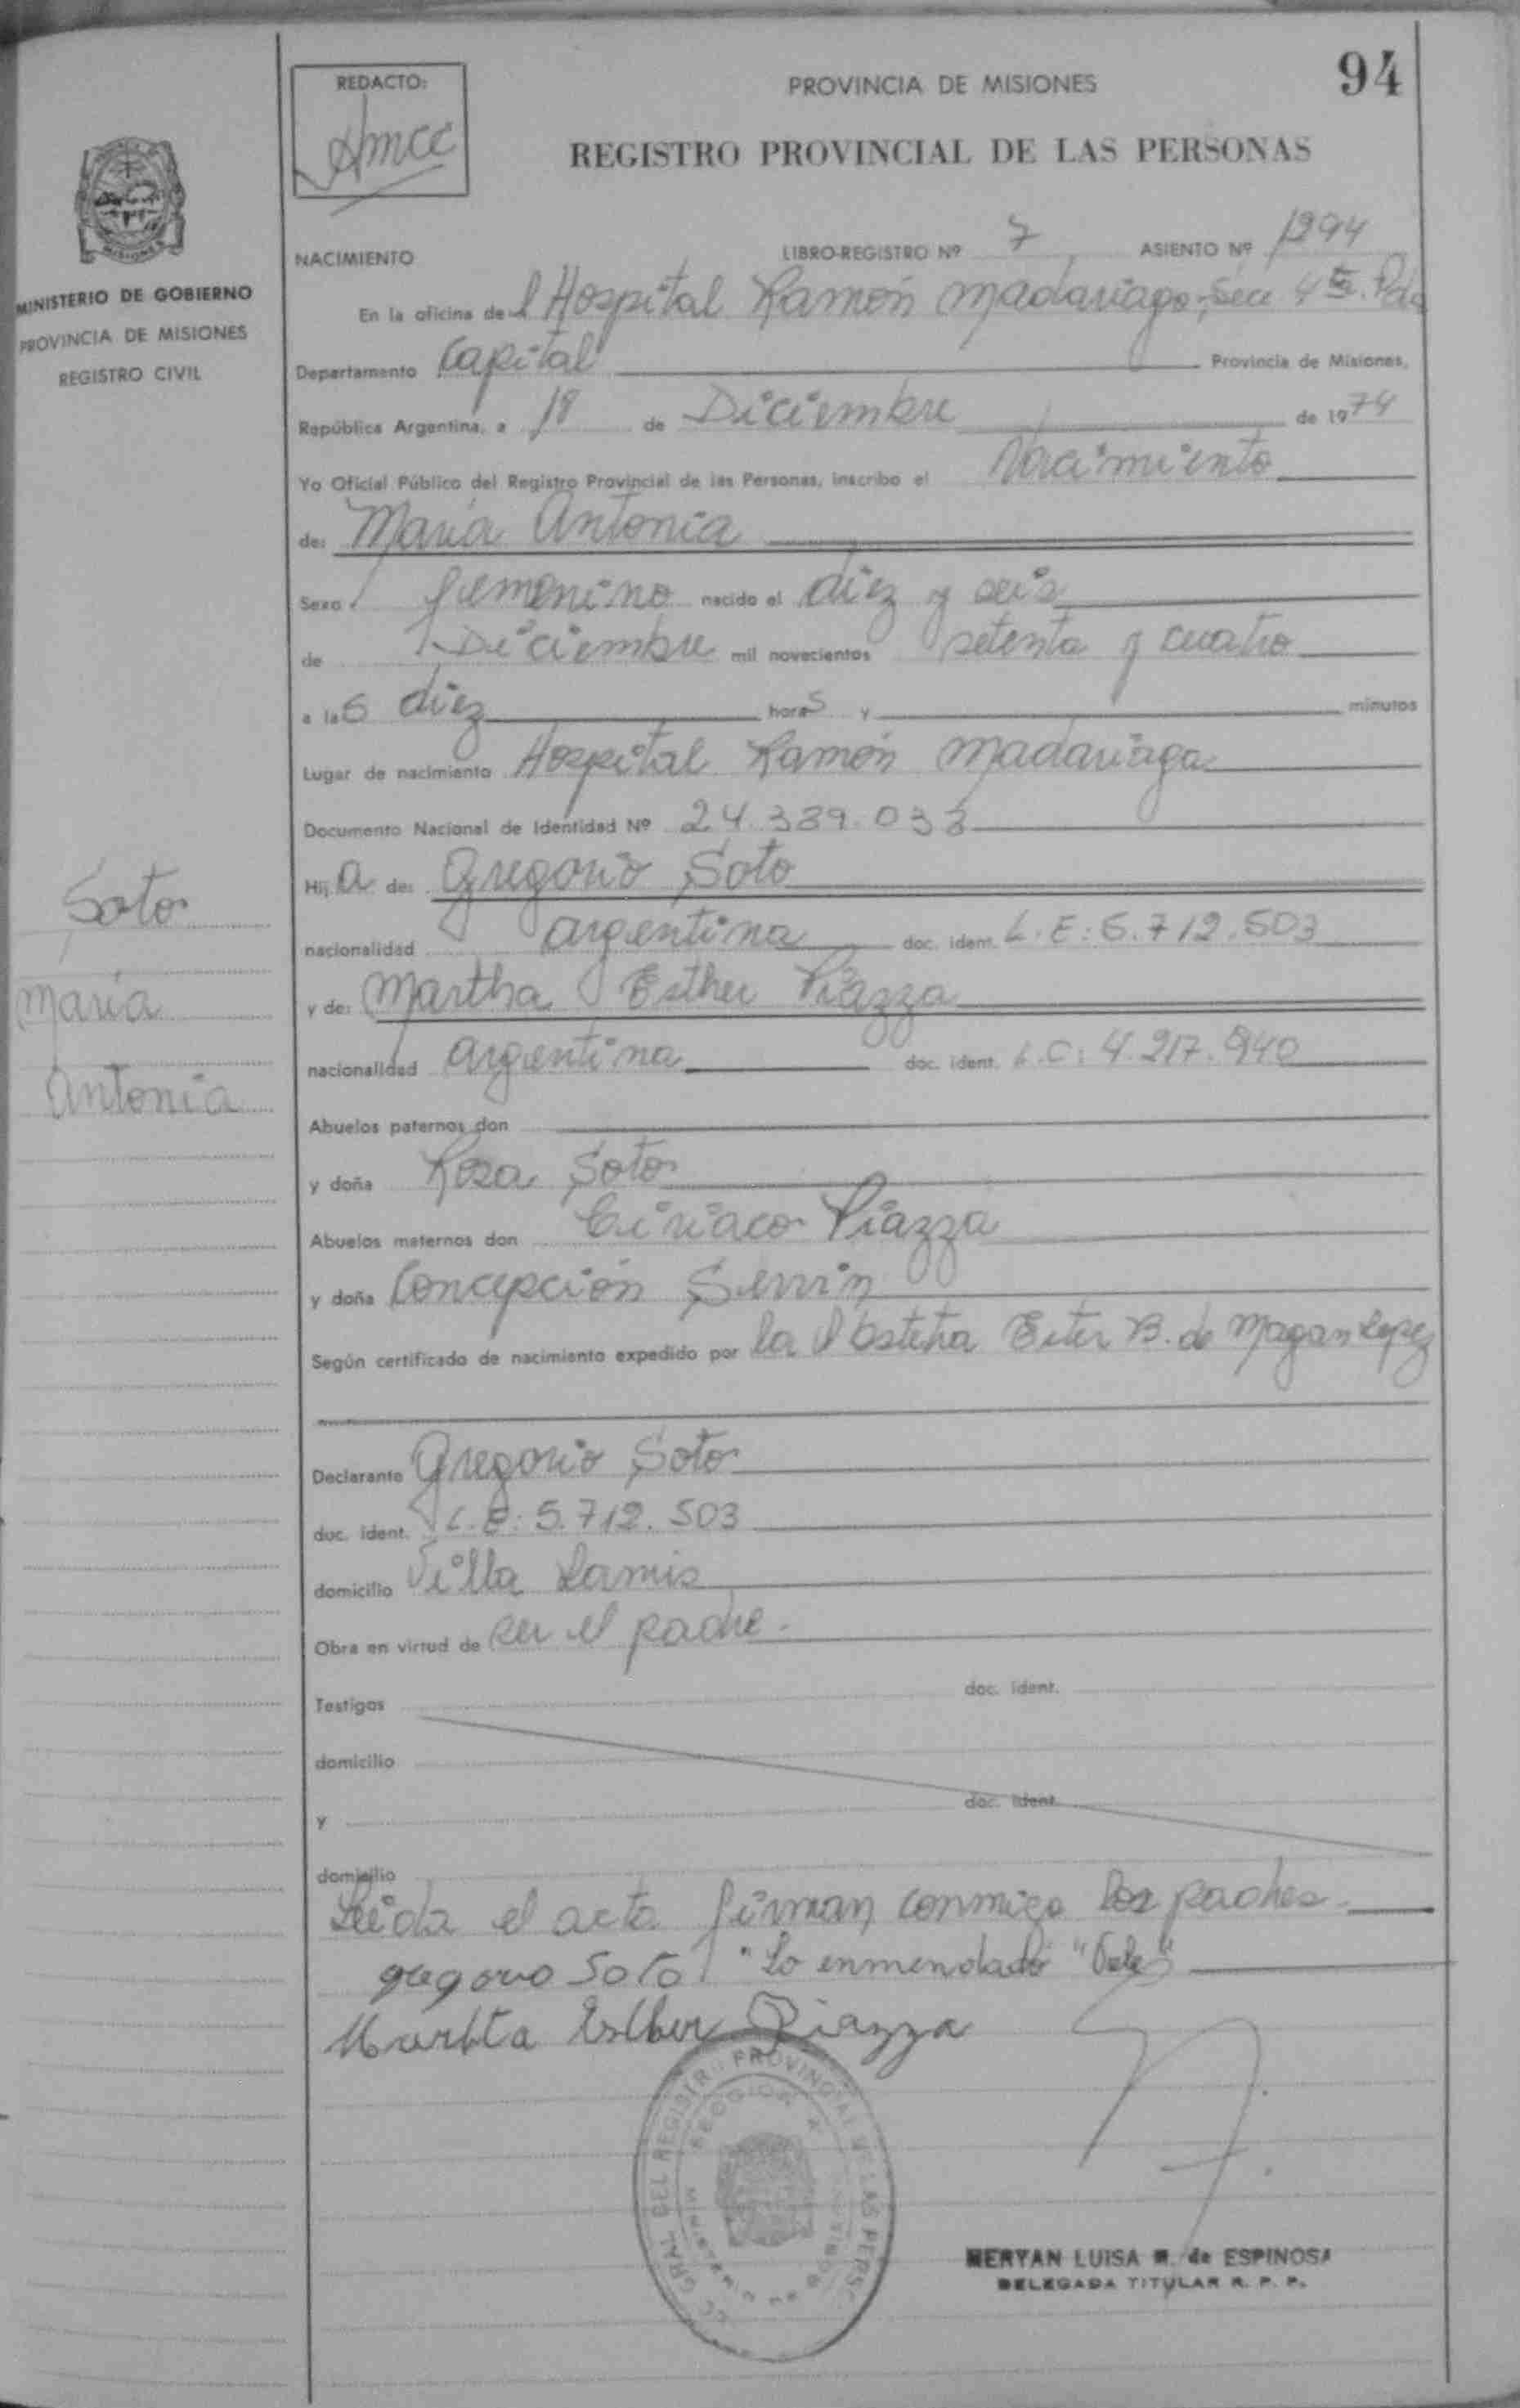 94
REDACTO:
PROVINCIA DE MISIONES
REGISTRO PROVINCIAL DE LAS PERSONAS
MISIONES
MINISTERIO DE GOBIERNO
PROVINCIA DE MISIONES
REGISTRO CIVIL
NACIMIENTO LIBRO-REGISTRO Nº 7 ASIENTO Nº 1294
En la oficina del Hospital Ramón Madariaga, Secc 4ta.
Departamento Capital Provincia de Misiones,
República Argentina, a 18 de Diciembre de 1974
Yo Oficial Público del Registro Provincial de las Personas, inscribo el Nacimiento
de: María Antonia
Sexo femenino nacido el diez y seis
de Diciembre mil novecientos setenta y cuatro
a las diez horas y minutos
Lugar de nacimiento Hospital Ramón Madariaga
Documento Nacional de Identidad Nº 24.389.033
Hija de: Gregorio Soto
Soto
nacionalidad argentina doc. ident. L.E: 5.712.503
María
y de: Martha Esther Piazza
nacionalidad argentina doc. ident. L.C: 4.217.940
Antonia
Abuelos paternos don
y doña Rosa Soto
Abuelos maternos don Ciriaco Piazza
y doña Concepción Servin
Según certificado de nacimiento expedido por la Obstetra Ester B. de Magan Lopez
Declarante Gregorio Soto
doc. ident. L.E: 5.712.503
domicilio Villa Lamis
Obra en virtud de ser el padre.
Testigos doc. ident.
domicilio
y doc. ident.
domicilio
Leida el acta firman conmigo los padres.
gregorio Soto "Lo enmendado "Vale"
Martta Esther Piazza
GRAL DEL REGISTRO PROVINCIAL DE LAS PERS
MERYAN LUISA M. de ESPINOSA
DELEGADA TITULAR R. P. P.